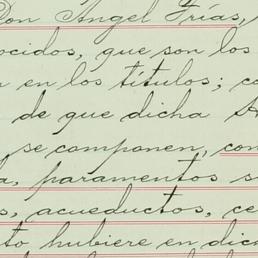 Don Angel Frías,
ocidos, que son los
en los títulos; co
de que dicha
se componen, con
a, paramentos s
s, acueductos, ce
to hubiere en dich